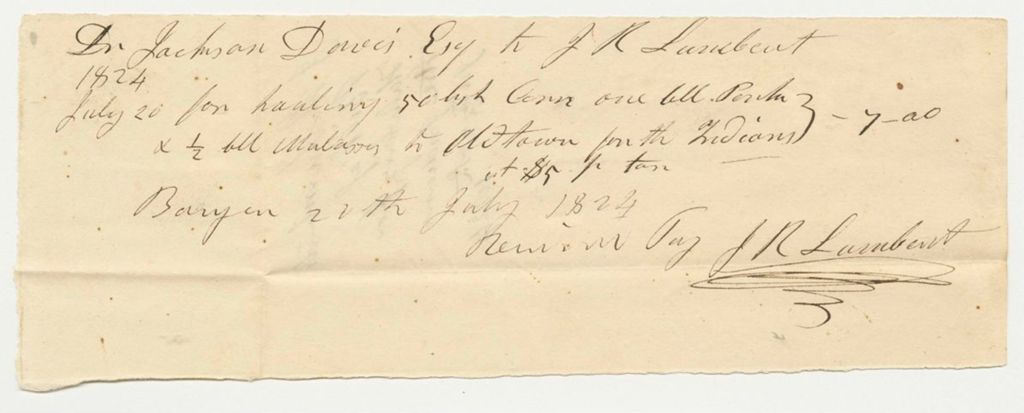 Dr Jackson Davis Esq to J R Lambert
1824
July 20 for hauling 50 bsh Corn one bbl Pork
& ½ bbl Molasses to Oldtown for th Indians } - 7-00
at $5 pr ton
Bangor 20th July 1824
Received Pay J R Lambert